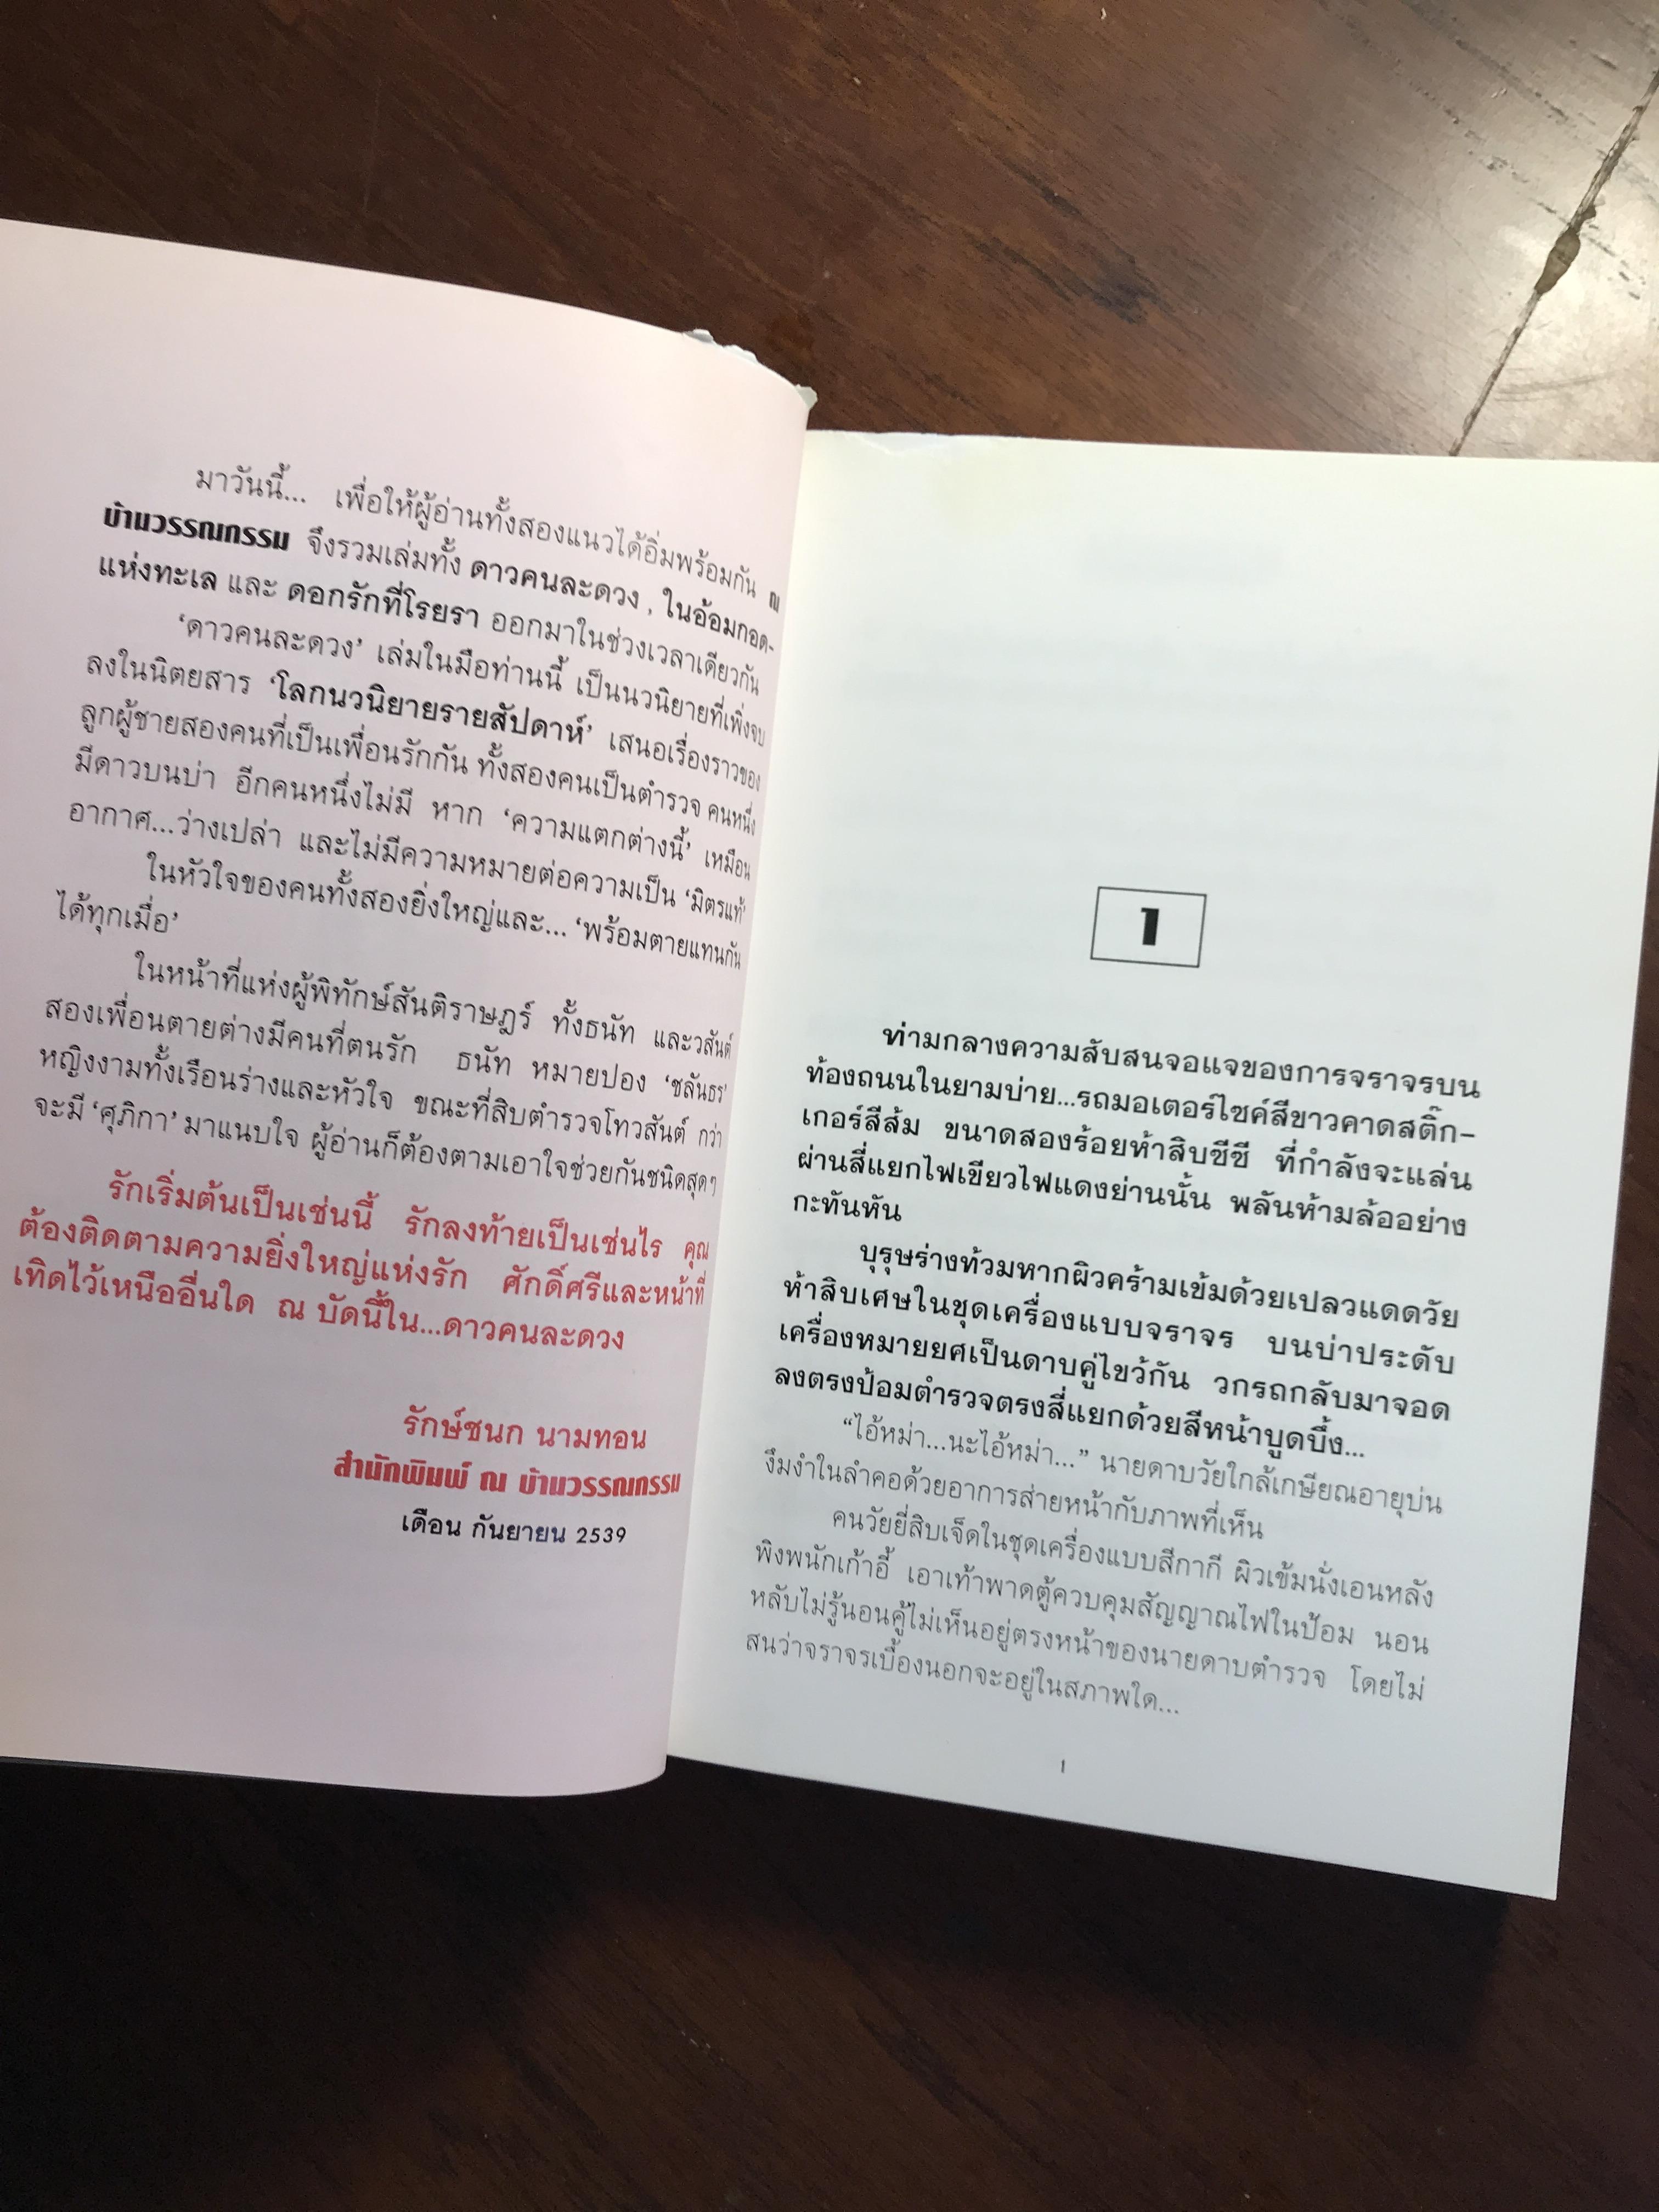 มาวันนี้... เพื่อให้ผู้อ่านทั้งสองแนวได้อิ่มพร้อมกัน ณ
บ้านวรรณกรรม จึงรวมเล่มทั้ง ดาวคนละดวง , ในอ้อมกอด-
แห่งทะเล และ ดอกรักที่โรยรา ออกมาในช่วงเวลาเดียวกัน
‘ดาวคนละดวง’ เล่มในมือท่านนี้ เป็นนวนิยายที่เพิ่งจบ
ลงในนิตยสาร ‘โลกนวนิยายรายสัปดาห์’ เสนอเรื่องราวของ
ลูกผู้ชายสองคนที่เป็นเพื่อนรักกัน ทั้งสองคนเป็นตำรวจ คนหนึ่ง
มีดาวบนบ่า อีกคนหนึ่งไม่มี หาก ‘ความแตกต่างนี้’ เหมือน
อากาศ...ว่างเปล่า และไม่มีความหมายต่อความเป็น ‘มิตรแท้’
ในหัวใจของคนทั้งสองยิ่งใหญ่และ... ‘พร้อมตายแทนกัน
ได้ทุกเมื่อ’
ในหน้าที่แห่งผู้พิทักษ์สันติราษฎร์ ทั้งธนัท และวสันต์
สองเพื่อนตายต่างมีคนที่ตนรัก ธนัท หมายปอง ‘ชลันธร’
หญิงงามทั้งเรือนร่างและหัวใจ ขณะที่สิบตำรวจโทวสันต์ กว่า
จะมี ‘ศุภิกา’ มาแนบใจ ผู้อ่านก็ต้องตามเอาใจช่วยกันชนิดสุดๆ
รักเริ่มต้นเป็นเช่นนี้ รักลงท้ายเป็นเช่นไร คุณ
ต้องติดตามความยิ่งใหญ่แห่งรัก ศักดิ์ศรีและหน้าที่
เทิดไว้เหนืออื่นใด ณ บัดนี้ใน...ดาวคนละดวง
รักษ์ชนก นามทอน
สำนักพิมพ์ ณ บ้านวรรณกรรม
เดือน กันยายน 2539
1
ท่ามกลางความสับสนจอแจของการจราจรบน
ท้องถนนในยามบ่าย...รถมอเตอร์ไซค์สีขาวคาดสติ๊ก-
เกอร์สีส้ม ขนาดสองร้อยห้าสิบซีซี ที่กำลังจะแล่น
ผ่านสี่แยกไฟเขียวไฟแดงย่านนั้น พลันห้ามล้ออย่าง
กะทันหัน
บุรุษร่างท้วมหากผิวคร้ามเข้มด้วยเปลวแดดวัย
ห้าสิบเศษในชุดเครื่องแบบจราจร บนบ่าประดับ
เครื่องหมายยศเป็นดาบคู่ไขว้กัน วกรถกลับมาจอด
ลงตรงป้อมตำรวจตรงสี่แยกด้วยสีหน้าบูดบึ้ง...
“ไอ้หม่า...นะไอ้หม่า...” นายดาบวัยใกล้เกษียณอายุบ่น
งึมงำในลำคอด้วยอาการส่ายหน้ากับภาพที่เห็น
คนวัยยี่สิบเจ็ดในชุดเครื่องแบบสีกากี ผิวเข้มนั่งเอนหลัง
พิงพนักเก้าอี้ เอาเท้าพาดตู้ควบคุมสัญญาณไฟในป้อม นอน
หลับไม่รู้นอนคู้ไม่เห็นอยู่ตรงหน้าของนายดาบตำรวจ โดยไม่
สนว่าจราจรเบื้องนอกจะอยู่ในสภาพใด...
1